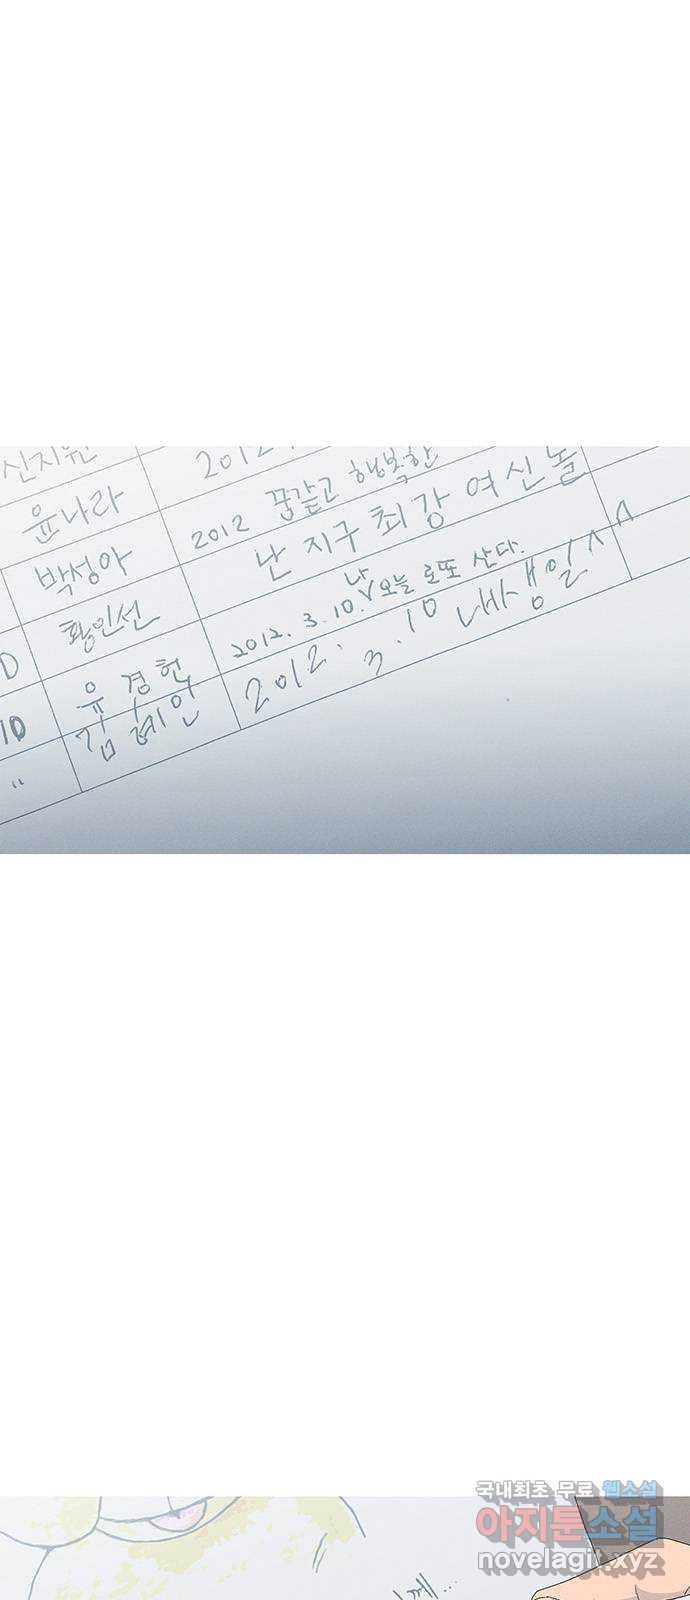 신지원 2012.
윤나라 2012 꿈같고 행복한
박성아 난 지구 최강 여신놀
황인선 2012. 3. 10. 나 오늘 로또 산다.
유경현 2012. 3. 10 내생일^^
김혜인
D
10
"
께...
국내최초 무료 웹소설
아지툰소설
novelagit.xyz